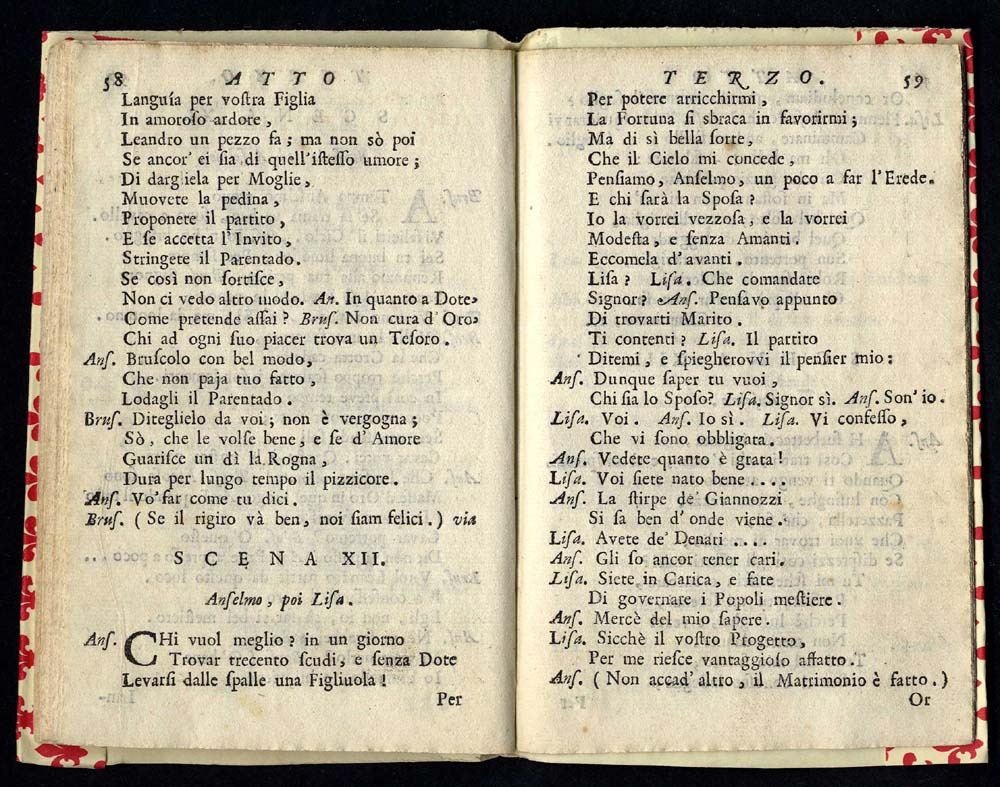 58 ATTO
Languía per vostra Figlia
In amoroso ardore,
Leandro un pezzo fa; ma non sò poi
Se ancor' ei sia di quell'istesso umore;
Di dargiela per Moglie,
Muovete la pedina,
Proponete il partito,
E se accetta l'Invito,
Stringete il Parentado.
Se così non sortisce,
Non ci vedo altro modo. An. In quanto a Dote
Come pretende assai? Brus. Non cura d'Oro
Chi ad ogni suo piacer trova un Tesoro.
Ans. Bruscolo con bel modo,
Che non paja tuo fatto,
Lodagli il Parentado.
Brus. Diteglielo da voi; non è vergogna;
Sò, che le volse bene, e se d'Amore
Guarisce un dì la Rogna,
Dura per lungo tempo il pizzicore.
Ans. Vo' far come tu dici.
Brus. (Se il rigiro và ben, noi siam felici.) via
SCENA XII.
Anselmo, poi Lisa.
Ans. CHi vuol meglio? in un giorno
Trovar trecento scudi, e senza Dote
Levarsi dalle spalle una Figliuola!
Per
TERZO. 59
Per potere arricchirmi,
La Fortuna si sbraca in favorirmi;
Ma di sì bella sorte,
Che il Cielo mi concede,
Pensiamo, Anselmo, un poco a far l'Erede.
E chi sarà la Sposa?
Io la vorrei vezzosa, e la vorrei
Modesta, e senza Amanti.
Eccomela d'avanti.
Lisa? Lisa. Che comandate
Signor? Ans. Pensavo appunto
Di trovarti Marito.
Ti contenti? Lisa. Il partito
Ditemi, e spiegherovvi il pensier mio:
Ans. Dunque saper tu vuoi,
Chi sia lo Sposo? Lisa. Signor sì. Ans. Son' io.
Lisa. Voi. Ans. Io sì. Lisa. Vi confesso,
Che vi sono obbligata.
Ans. Vedete quanto è grata!
Lisa. Voi siete nato bene....
Ans. La stirpe de' Giannozzi
Si sa ben d'onde viene.
Lisa. Avete de' Denari ....
Ans. Gli so ancor tener cari.
Lisa. Siete in Carica, e fate
Di governare i Popoli mestiere.
Ans. Mercè del mio sapere.
Lisa. Sicchè il vostro Progetto,
Per me riesce vantaggioso affatto.
Ans. (Non accad'altro, il Matrimonio è fatto.)
Or